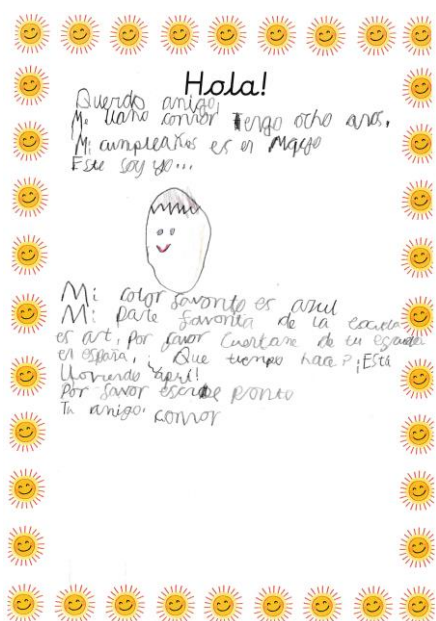 Hola!
Querdo amigo,
Me llamo connor Tengo ocho anos,
Mi cumpleañes es en Mayo
Este soy yo...
Mi color favorito es azul
Mi parte favorita de la escuela
es art, Por favor Cuentame de tu escuela
en españa, ¿Que tiempo hace? ¡Esta
lloviendo aqui!
Por favor escribe pronto
Tu amigo. connor